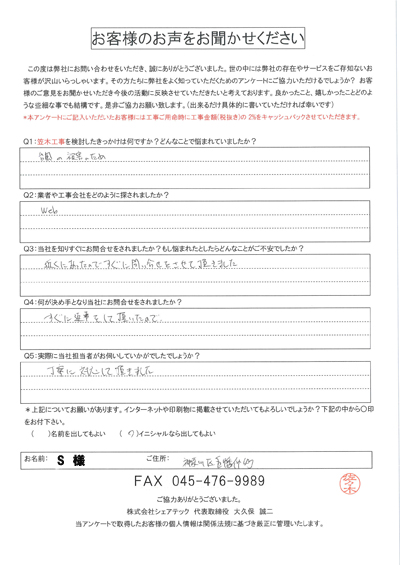 お客様のお声をお聞かせください
この度は弊社にお問い合わせをいただき、誠にありがとうございました。世の中には弊社の存在やサービスをご存知ないお
客様が沢山いらっしゃいます。その方たちに弊社をよく知っていただくためのアンケートにご協力いただけるでしょうか？ お客
様のご意見をお聞かせいただき今後の活動に反映させていただきたいと考えております。良かったこと、嬉しかったことどのよ
うな些細な事でも結構です。是非ご協力お願い致します。（出来るだけ具体的に書いていただければ幸いです）
*本アンケートにご記入いただいたお客様には工事ご用命時に工事金額（税抜き）の 2%をキャッシュバックさせていただきます。
Q1：笠木工事を検討したきっかけは何ですか？どんなことで悩まれていましたか？
Q2：業者や工事会社をどのように探されましたか？
Web
Q3：当社を知りすぐにお問合せをされましたか？もし悩まれたとしたらどんなことがご不安でしたか？
近くにあったのですぐに問い合せをさせて頂きました
Q4：何が決め手となり当社にお問合せをされましたか？
すぐに返事をして頂いたので
Q5：実際に当社担当者がお伺いしていかがでしたでしょうか？
丁寧に対応して頂きました
＊上記についてお願いがあります。インターネットや印刷物に掲載させていただいてもよろしいでしょうか？下記の中から○印
をお付下さい。
（ ）名前を出してもよい （○）イニシャルなら出してもよい
お名前： S 様 ご住所：
FAX 045-476-9989
佐々木
ご協力ありがとうございました。
株式会社シェアテック 代表取締役 大久保 誠二
当アンケートで取得したお客様の個人情報は関係法規に基づき厳正に管理いたします。